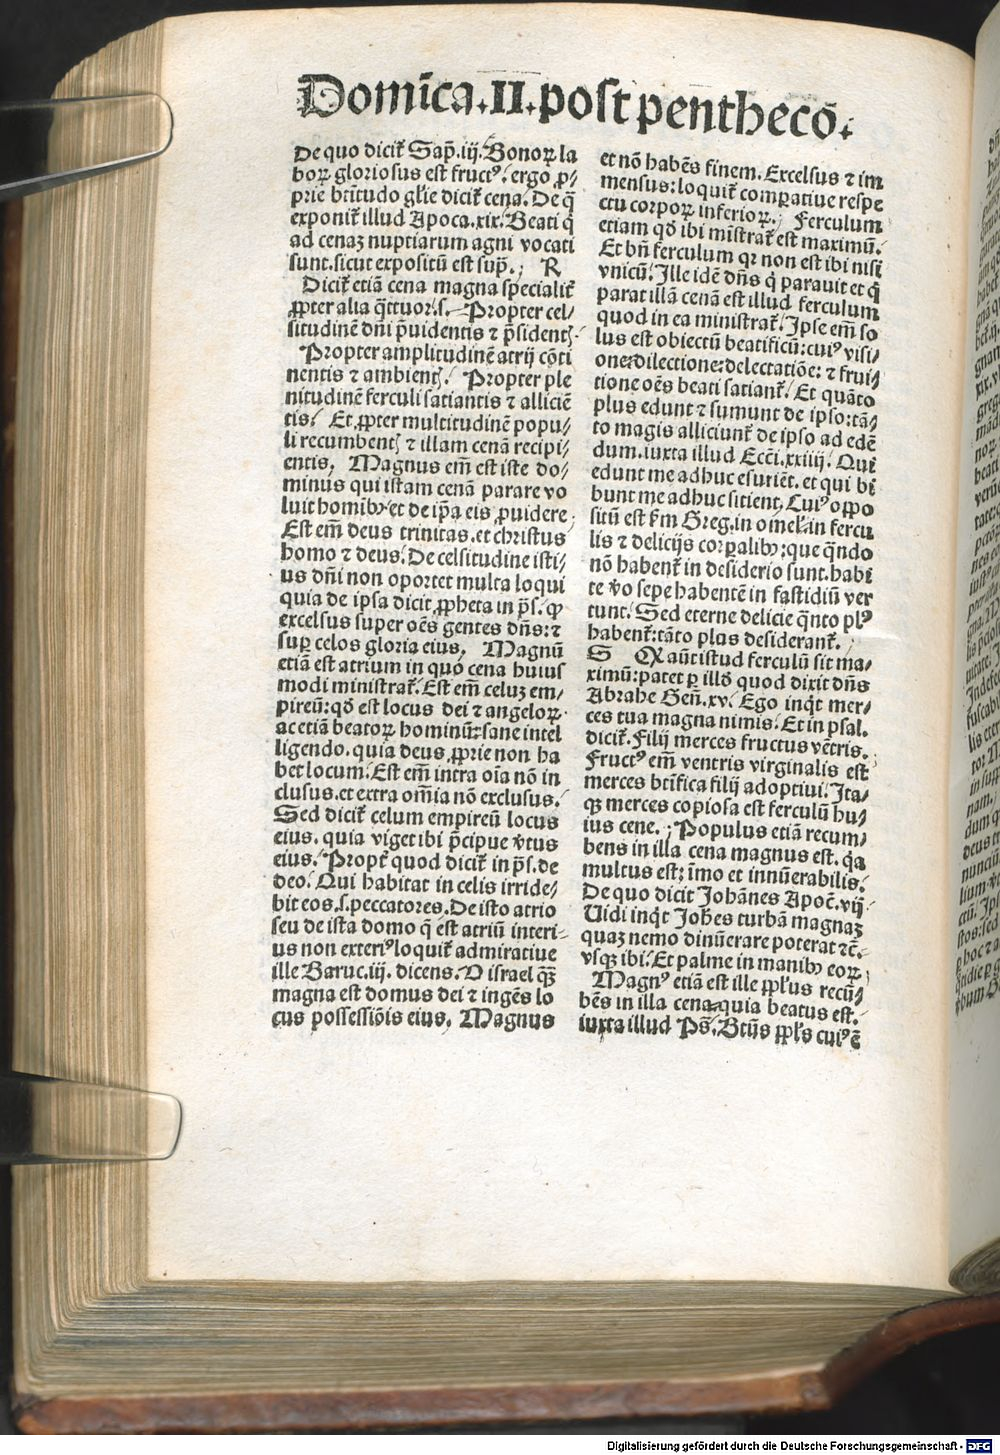 Domīca.II.post penthecō.
De quo dicit᷑ Sap̄.iij. Bonoꝝ la
boꝝ gloriosus est fruct⁹. ergo ꝓ⸗
prie bt̄itudo gl̄ie dicit᷑ cena. De q̄
exponit᷑ illud Apoca.xix. Beati q̄
ad cenaꝫ nuptiarum agni vocati
sunt. sicut expositū est sup̄. R
Dicit᷑ etiā cena magna specialit᷑
ꝓpter alia q̄ttuor. s. Propter cel⸗
situdinē dn̄i p̄uidentis ⁊ p̄sidentꝭ.
Propter amplitudinē atrij cōti
nentis ⁊ ambientꝭ. Propter ple
nitudinē ferculi satiantis ⁊ alliciē
tis. Et ꝓpter multitudinē popu⸗
li recumbentꝭ ⁊ illam cenā recipi⸗
entis. Magnus em̄ est iste do⸗
minus qui istam cenā parare vo
luit homībꝰ et de ip̄a eis ꝓuidere.
Est em̄ deus trinitas. et christus
homo ⁊ deus. De celsitudine isti⸗
us dn̄i non oportet multa loqui
quia de ipsa dicit ꝓpheta in p̄s. ꝙ
excelsus super oēs gentes dn̄s: ⁊
suꝑ celos gloria eius. Magnū
etiā est atrium in quo cena huius
modi ministrat᷑. Est em̄ celuꝫ em⸗
pireū: qď est locus dei ⁊ angeloꝝ
ac etiā beatoꝝ hominū: sane intel
ligendo. quia deus ꝓprie non ha
bet locum. Est em̄ intra oīa nō in
clusus. et extra om̄ia nō exclusus.
Sed dicit᷑ celum empireū locus
eius. quia viget ibi p̄cipue v̄tus
eius. Propt̄ quod dicit᷑ in p̄s. de
deo. Qui habitat in celis irride⸗
bit eos. s. peccatores. De isto atrio
seu de ista domo q̄ est atriū interi⸗
us non exteri⁹ loquit᷑ admiratiue
ille Baruc.iij. dicens. O israel qꝫ̄
magna est domus dei ⁊ ingēs lo
cus possessiōis eius. Magnus
et nō habēs finem. Excelsus ⁊ im
mensus: loquit᷑ comparatiue respe
ctu corpoꝝ inferioꝝ. Ferculum
etiam qď ibi mīstrat᷑ est maximū.
Et bn̄ ferculum qꝛ non est ibi nisi
vnicū. Ille idē dn̄s q̄ parauit et q̄
parat illā cenā est illud ferculum
quod in ea ministrat᷑. Ipse em̄ so
lus est obiectū beatificū: cui⁹ visi⸗
one: dilectione: delectatiōe: ⁊ frui⸗
tione oēs beati satiant᷑. Et quāto
plus edunt ⁊ sumunt de ipso: tā⸗
to magis alliciunt᷑ de ipso ad edē
dum. iuxta illud Ecci.xxiiij. Qui
edunt me adhuc esuriēt. et qui bi
bunt me adhuc sitient. Cui⁹ oppo
sitū est ẜm Greg. in omel. in fercu
lis ⁊ delicijs corꝑalibꝰ: que q̄ndo
nō habent᷑ in desiderio sunt. habi
te v̄o sepe habentē in fastidiū ver
tunt. Sed eterne delicie q̄nto pl⁹
habent᷑: tāto plus desiderant᷑.
S Qꝙ aūt istud ferculū sit ma⸗
ximū: patet ꝑ illď quod dixit dn̄s
Abrahe Gen̄.xv. Ego inqt̄ mer⸗
ces tua magna nimis. Et in psal.
dicit᷑. Filij merces fructus vētris.
Fruct⁹ em̄ ventris virginalis est
merces bt̄ifica filij adoptiui. Ita⸗
qꝫ merces copiosa est ferculū hu⸗
ius cene. Populus etiā recum⸗
bens in illa cena magnus est. q̄a
multus est: īmo et innūerabilis.
De quo dicit Johānes Apoc̄.vij.
Vidi inqt̄ Joh̄es turbā magnaꝫ
quaꝫ nemo dinūerare poterat ⁊c̄.
vsqꝫ ibi. Et palme in manibꝰ eoꝝ
Magn⁹ etiā est ille ppl̄us recū⸗
bēs in illa cena. quia beatus est.
iuxta illud Ps̄. Bt̄us ppl̄s cui⁹ ē